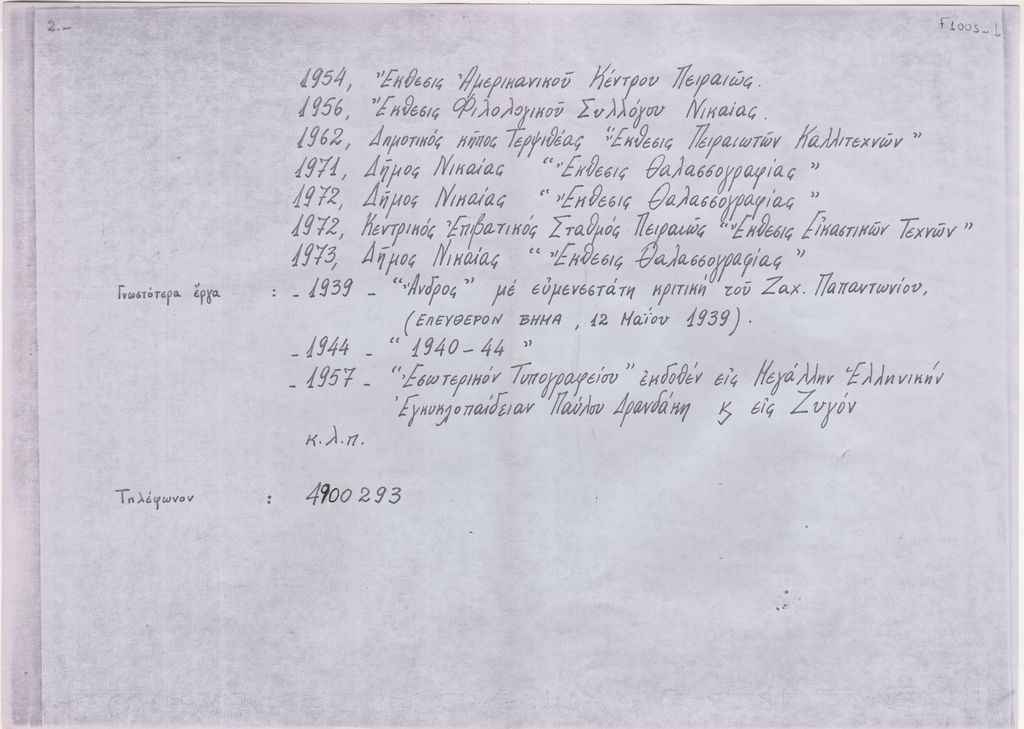 2.-
F1005-1
1954, Ἔκθεσις Ἀμερικανικοῦ Κέντρου Πειραιῶς.
1956, Ἔκθεσις Φιλολογικοῦ Συλλόγου Νικαίας.
1962, Δημοτικός κῆπος Τερψιθέας "Ἔκθεσις Πειραιωτῶν Καλλιτεχνῶν"
1971, Δῆμος Νικαίας "Ἔκθεσις Θαλασσογραφίας"
1972, Δῆμος Νικαίας "Ἔκθεσις Θαλασσογραφίας"
1972, Κεντρικός Ἐπιβατικός Σταθμός Πειραιῶς "Ἔκθεσις Εἰκαστικῶν Τεχνῶν"
1973, Δῆμος Νικαίας "Ἔκθεσις Θαλασσογραφίας"
Γνωστότερα ἔργα : - 1939 - "Ἄνδρος" μέ εὐμενεστάτη κριτική τοῦ Ζαχ. Παπαντωνίου,
(ΕΛΕΥΘΕΡΟΝ ΒΗΜΑ, 12 Μαΐου 1939).
- 1944 - "1940-44"
- 1957 - "Ἐσωτερικόν Τυπογραφείου" ἐκδοθέν εἰς Μεγάλην Ἑλληνικήν
Ἐγκυκλοπαίδειαν Παύλου Δρανδάκη ϗ εἰς Ζυγόν
κ.λ.π.
Τηλέφωνον : 4900293